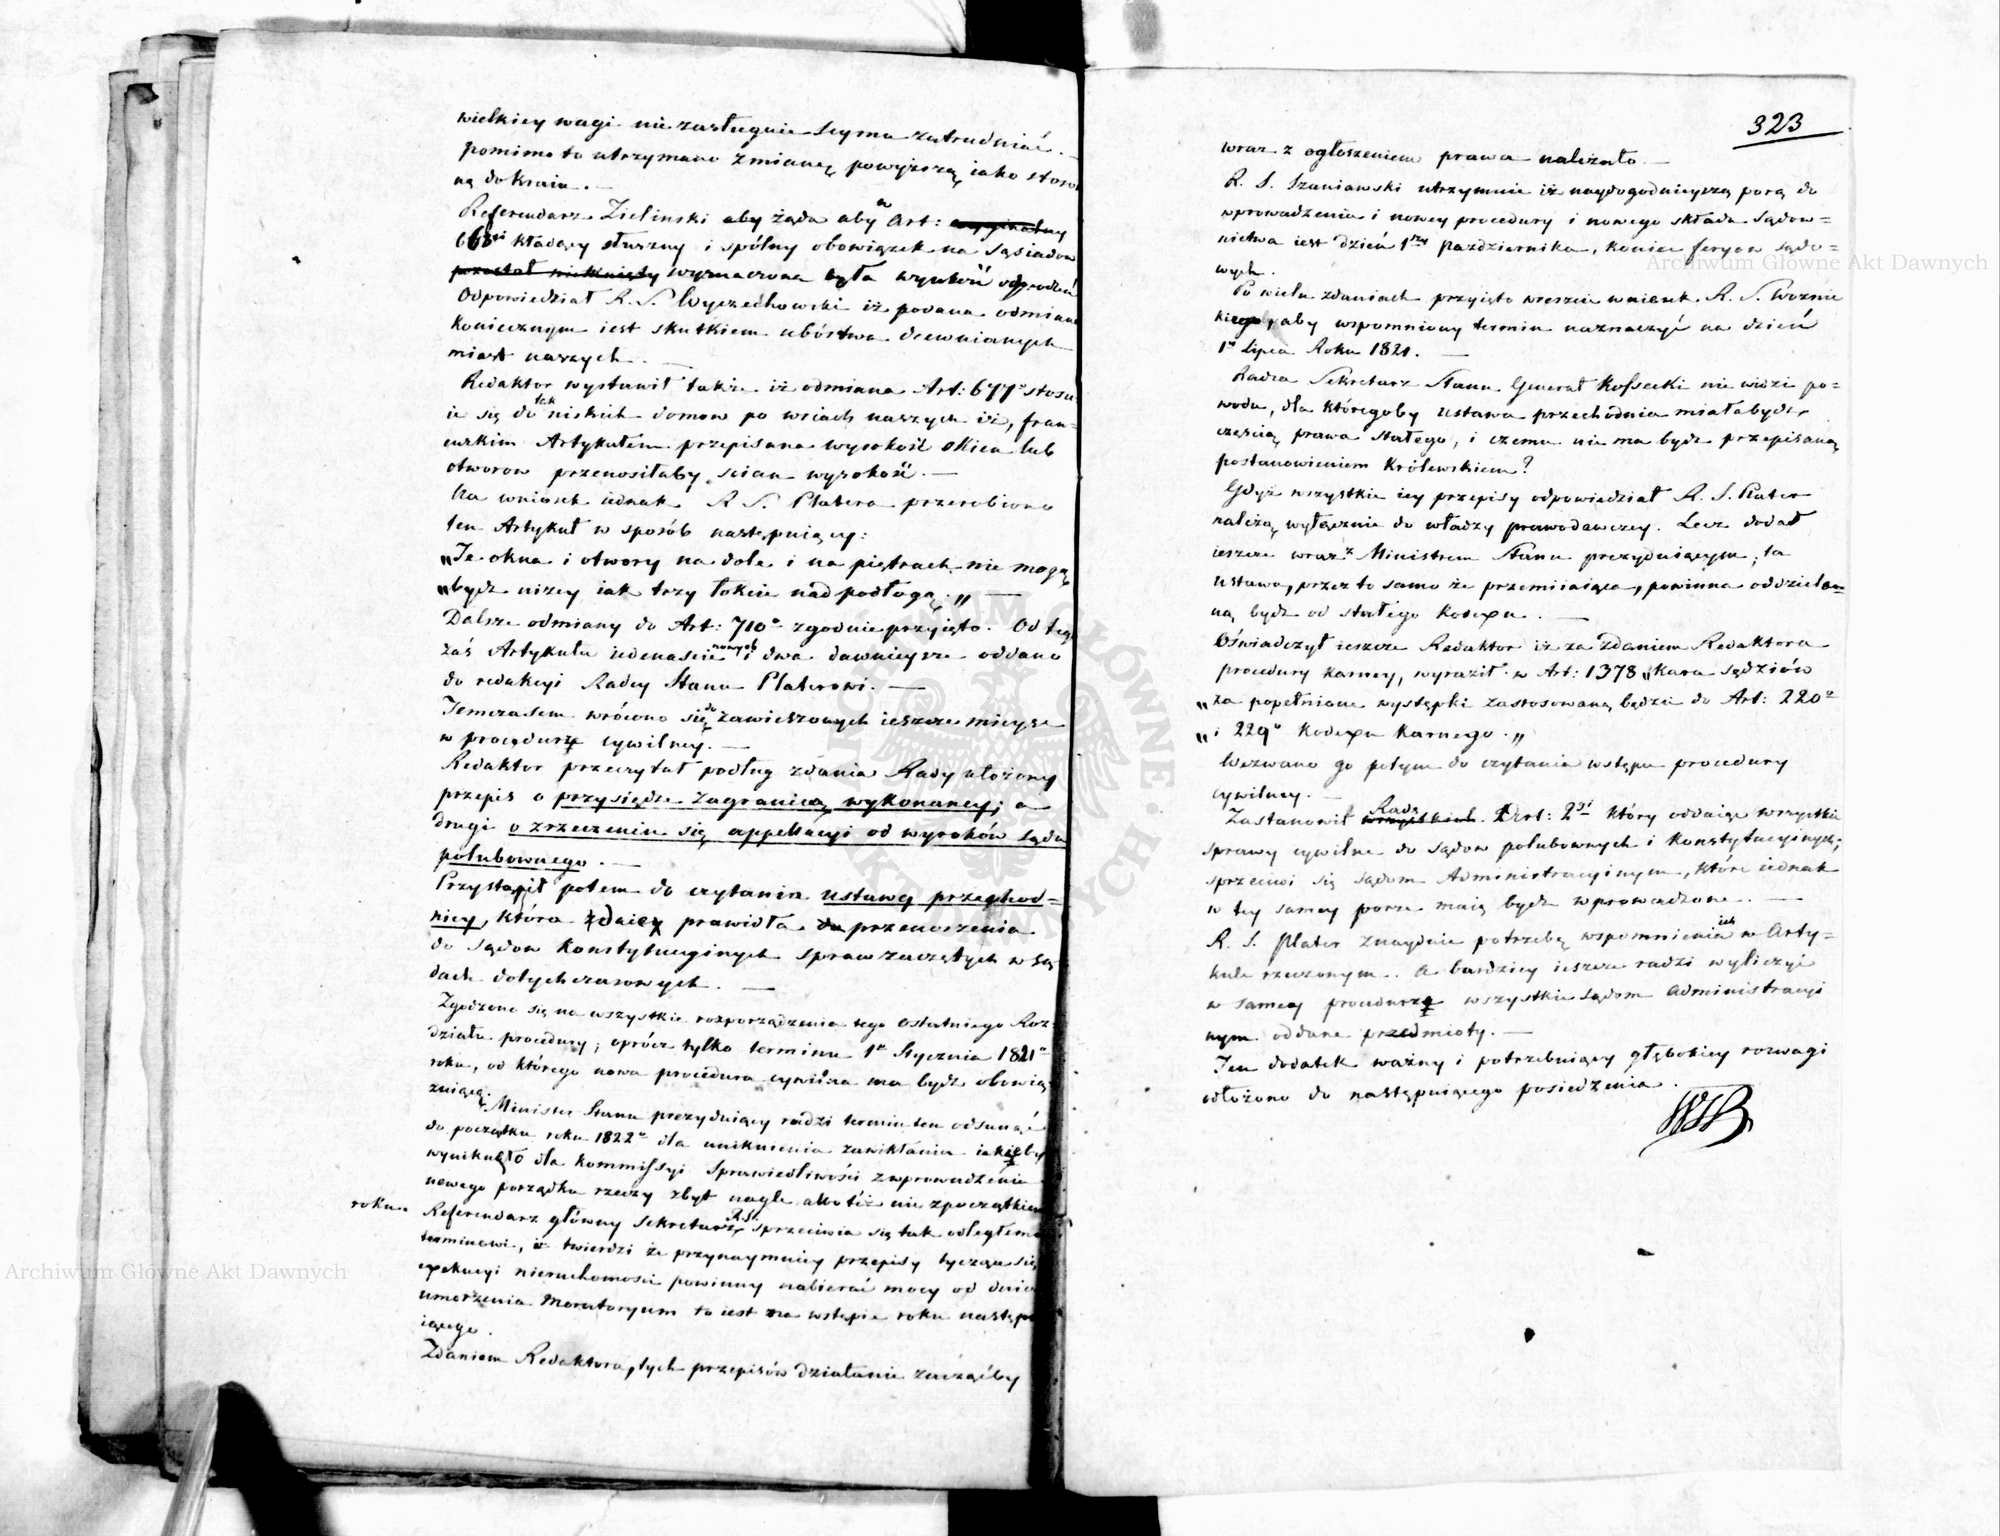 wielkiey wagi nie zasługuie Seyma zatrudniać. —
pomimo to utrzymano zmianę powyższą iako stosow
ną do Kraiu. —
Referendarz Zielinski aby żąda aby w Art:
668mi kładący słuszny i spólny obowiązek na Sąsiadow
wyznaczona była wysokość ogrodzeń
Odpowiedział R. S. Wyczechowski iż podana odmiana
koniecznym iest skutkiem ubóstwa drewnianych
miast naszych. —
Redaktor wystawił także iż odmiana Art: 677o stosu-
ie się do tak niskich domow po wsiach naszych iż, fran-
cuzkim Artykułem przepisana wysokość okien lub
otworow przenosiłaby scian wysokość. —
Na wniosek iednak R. S. Platera przerobiono
ten Artykuł w sposób następuiący:
„Te okna i otwory na dole i na piętrach nie mogą
„bydź niżey iak trzy łokcie nad podłogą.„ —
Dalsze odmiany do Art: 710o zgodnie przyięto. Od tego
zaś Artykułu iedenaście nowych i dwa dawnieysze oddano
do redakcyi Radcy Stanu Platerowi. —
Temczasem wrócono się do zawieszonych ieszcze mieysc
w procedurze cywilney. —
Redaktor przeczytał podług zdania Rady ułożony
przepis o przysiędze zagranicą wykonaney; a
drugi o zrzeczeniu się appellacyi od wyroków sądu
polubownego. —
Przystąpił potem do czytania ustawy przechod-
niey, która zdaie prawidła przenoszenia
do sądow Konstytucyinych spraw zaczętych w Są-
dach dotychczasowych. —
Zgodzono się na wszystkie rozporządzenia tego ostatniego Roz-
działu procedury; oprócz tylko terminu 1o Stycznia 1821o
roku, od którego nowa procedura cywilna ma bydź obowią-
zuiącą.
Minister Stanu prezyduiący radzi termin ten odsunąć
do początku roku 1822o dla uniknienia zawikłania iakieby
wyniknęło dla Kommissyi Sprawiedliwości z wprowadzenia
nowego porządku rzeczy zbyt nagle albo też nie z początkiem
roku.
Referendarz główny Sekretarz R. St. sprzeciwia się tak odległemu
terminowi, i twierdzi że przynaymniey przepisy tyczące się
expekucyi nieruchomości powinny nabierać mocy od dnia
umorzenia Moratoryum to iest na wstępie roku następu
iącego.
Zdaniem Redaktora, tych przepisów działanie zacząćby
323
wraz z ogłoszeniem prawa należało. —
R. S. Szaniawski utrzymuie iż naydogodnieyszą porą do
wprowadzenia i nowey procedury i nowego składu Sądow=
nictwa iest dzień 1szy Października, koniec feryow sądo=
wych.
Po wielu zdaniach przyięto wreszcie wniosek R. S. Woznic
kiego, aby wspomniony termin naznaczyć na dzień
1o Lipca Roku 1821. —
Radca Sekretarz Stanu Generał Kossecki nie widzi po=
wodu, dla któregoby ustawa przechodnia miałabydź
częścią prawa stałego, i czemu nie ma bydź przepisaną
postanowieniem Królewskiem?
Gdyż wszystkie iey przepisy odpowiedział R. S. Plater
należą wyłącznie do władzy prawodawczey. Lecz dodał
ieszcze wraz z Ministrem Stanu prezyduiącym, ta
ustawa, przez to samo że przemiiaiąca, powinna oddzielo=
ną bydź od stałego Kodexu. —
Oświadczył ieszcze Redaktor iż za zdaniem Redaktora
procedury karney, wyraził w Art: 1378 „Kara Sędziów
„za popełnione występki zastosowaną będzie do Art: 220o
„i 229o Kodexu Karnego.„
Wezwano go potym do czytania wstępu procedury
cywilney. —
Zastanowił Radę Art: 2gi który oddaiąc wszystkie
sprawy cywilne do sądow polubownych i Konstytucyinych;
sprzeciwi się sądom Administracyinym, które iednak
w tey samey porze maią bydź wprowadzone. —
R. S. Plater znayduie potrzebę wspomnienia ich w Arty=
kule rzeczonym. A bardziey ieszcze radzi wyliczyć
w samey procedurze wszystkie sądom Administracyi
nym oddane przedmioty. —
Ten dodatek ważny i potrzebuiący głębokiey rozwagi
odłożono do następuiącego posiedzenia.
Archiwum Główne Akt Dawnych
Archiwum Główne Akt Dawnych